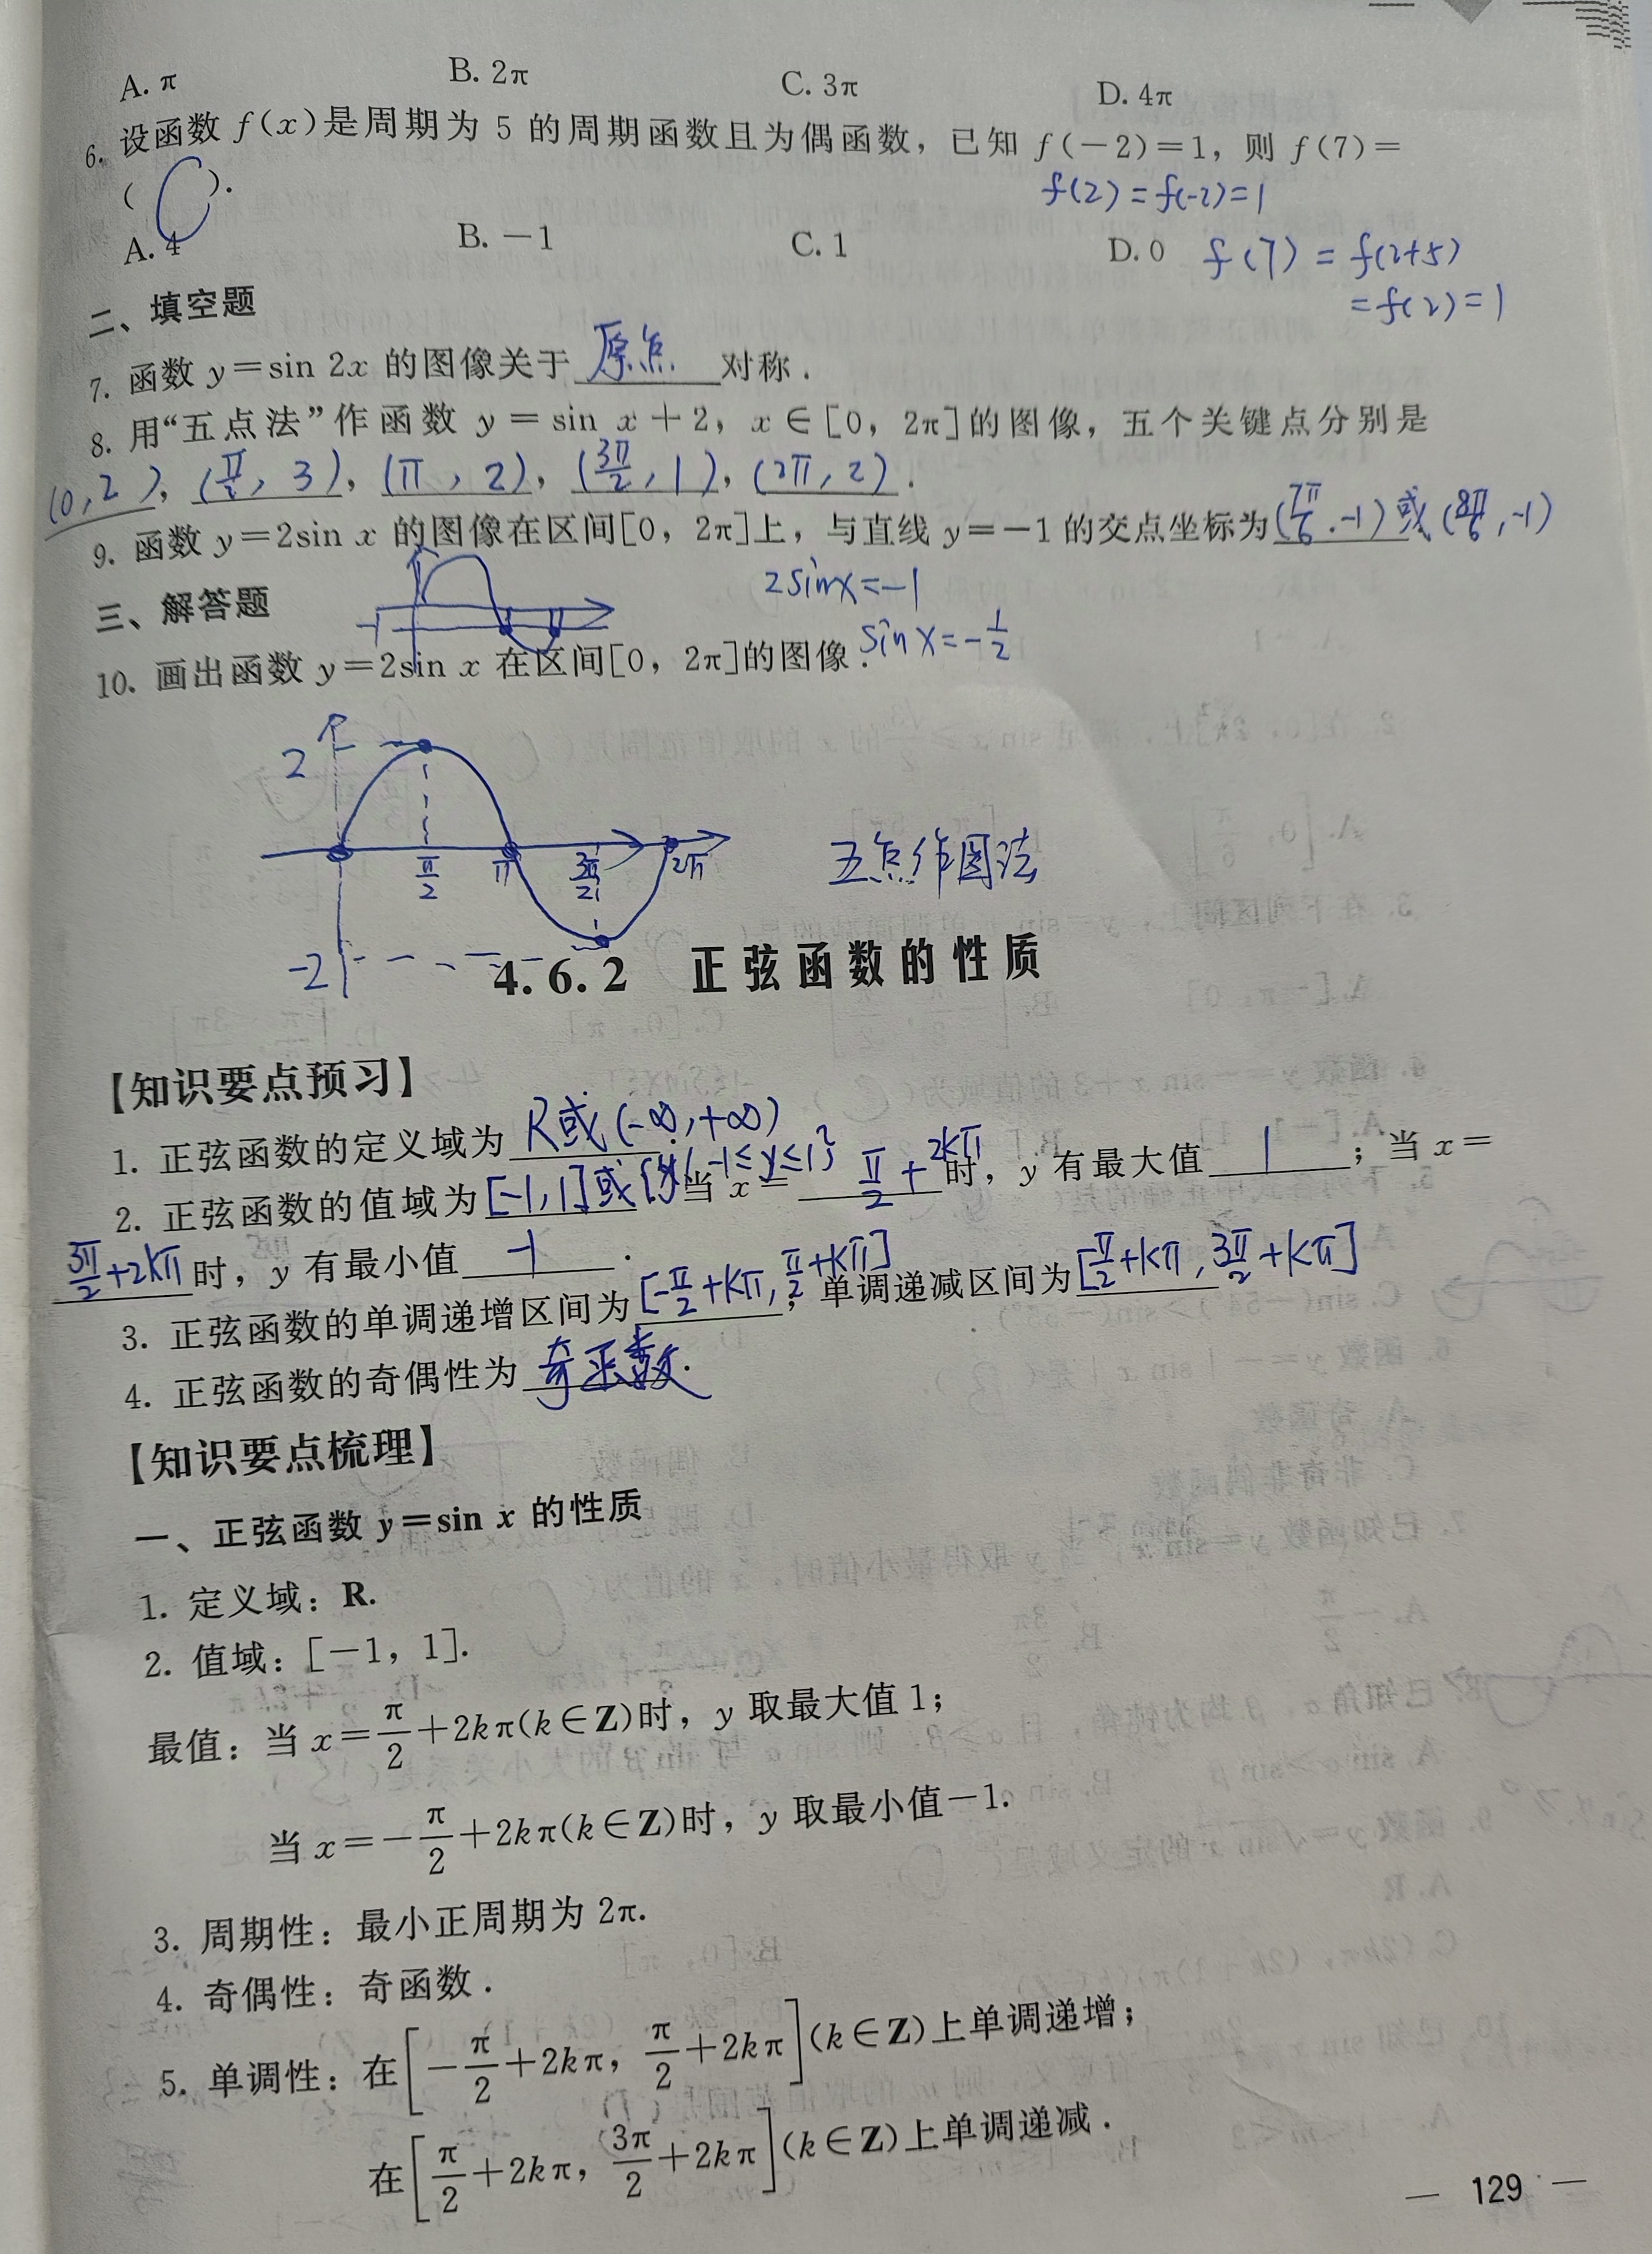 A. π B. 2π C. 3π D. 4π
6. 设函数 f(x)是周期为 5 的周期函数且为偶函数，已知 f(－2)＝1，则 f(7)＝
( C ).
f(2)=f(-2)=1
A. 4 B. －1 C. 1 D. 0
f(7)=f(2+5)
=f(2)=1
二、填空题
7. 函数 y＝sin 2x 的图像关于 原点 对称.
8. 用“五点法”作函数 y＝sin x＋2，x∈[0，2π]的图像，五个关键点分别是
(0,2)，(π/2, 3)，(π, 2)，(3π/2, 1)，(2π, 2).
9. 函数 y＝2sin x 的图像在区间[0，2π]上，与直线 y＝－1 的交点坐标为(7π/6,-1)或( ,-1)
2sinx=-1
三、解答题
-1
sinx=-1/2
10. 画出函数 y＝2sin x 在区间[0，2π]的图像.
2
π/2 π 3π/2 2π
五点作图法
-2
4.6.2 正弦函数的性质
【知识要点预习】
1. 正弦函数的定义域为 R或(-∞,+∞)
2. 正弦函数的值域为 [-1,1]或{y|-1≤y≤1} 当 x＝ π/2+2kπ 时，y 有最大值 1 ；当 x＝
3π/2+2kπ 时，y 有最小值 -1 .
3. 正弦函数的单调递增区间为[-π/2+kπ, π/2+kπ]；单调递减区间为[π/2+kπ, 3π/2+kπ].
4. 正弦函数的奇偶性为 奇函数.
【知识要点梳理】
一、正弦函数 y＝sin x 的性质
1. 定义域：R.
2. 值域：[－1，1].
最值：当 x＝π/2＋2kπ(k∈Z)时，y 取最大值 1；
当 x＝－π/2＋2kπ(k∈Z)时，y 取最小值－1.
3. 周期性：最小正周期为 2π.
4. 奇偶性：奇函数.
5. 单调性：在[－π/2＋2kπ，π/2＋2kπ](k∈Z)上单调递增；
在[π/2＋2kπ，3π/2＋2kπ](k∈Z)上单调递减.
— 129 —